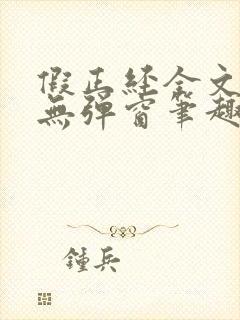 假正经全文
無彈窗筆趣
鍾兵